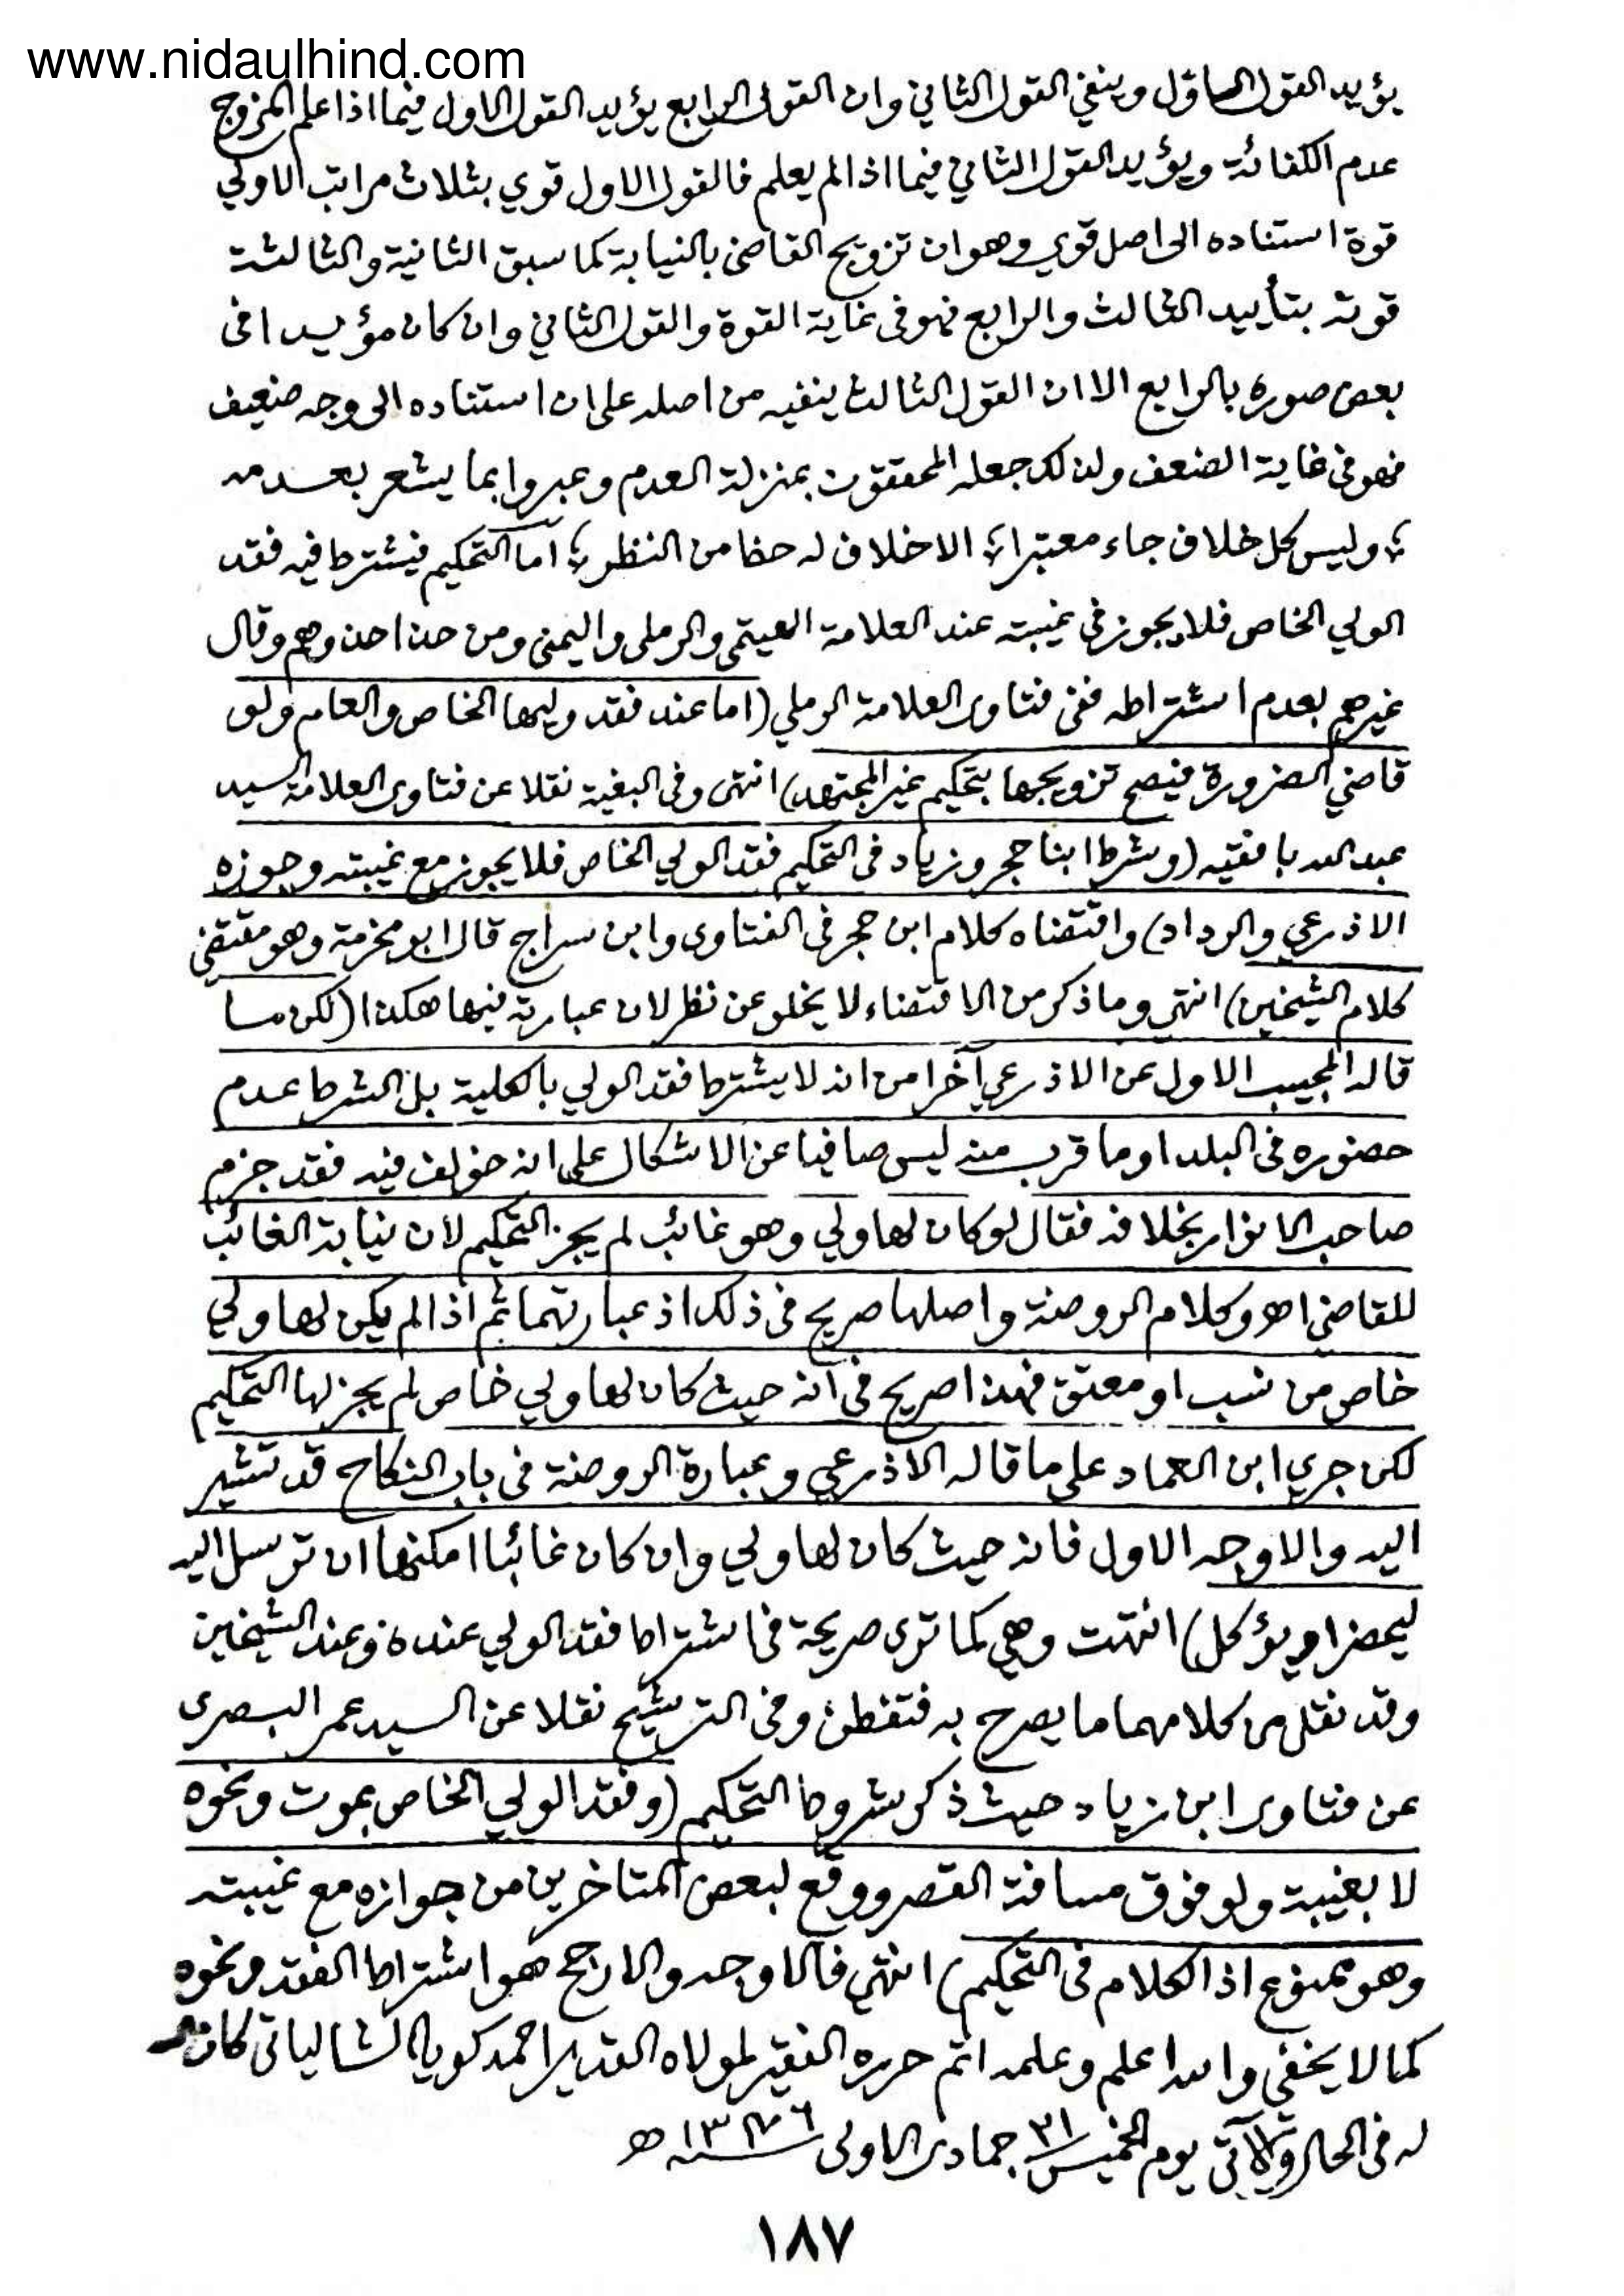 www.nidaulhind.com
يؤيد القول الاول وينفي القول الثاني وان القول الرابع يؤيد القول الاول فيما اذا علم المزوج
عدم الكفائة ويؤيد القول الثاني فيما اذا لم يعلم فالقول الاول قوي بثلاث مراتب الاولي
قوة استناده الى اصل قوي وهو ان تزويج القاضى بالنيابة كما سبق الثانية والثالثة
قوته بتأييد الثالث والرابع فهو فى غاية القوة والقول الثاني وان كان مؤيدا فى
بعض صوره بالرابع الا ان القول الثالث ينفيه من اصله على ان استناده الى وجه ضعيف
فهو فى غاية الضعف ولذلك جعله المحققون بمنزلة العدم وعبروا بما يشعر بعدمه
؛ وليس كل خلاف جاء معتبرا ؛ الا خلاف له حظ من النظر ؛ اما التحكيم فيشترط فيه فقد
الولي الخاص فلا يجوز فى غيبته عند العلامة الهيتمي والرملى واليمنى ومن حذا حذوهم وقال
غيرهم بعدم اشتراطه ففى فتاوى العلامة الرملي (اما عند فقد وليها الخاص والعام ولو
قاضي الضرورة فيصح تزويجها بتحكيم غير المجتهد) انتهى وفى البغية نقلا عن فتاوى العلامة السيد
عبد الله بافقيه (وشرط ابنا حجر وزياد فى التحكيم فقد الولي الخاص فلا يجوز مع غيبته وجوزه
الاذرعي والرداد) واقتضاه كلام ابن حجر فى الفتاوى وابن سراج قال ابو مخرمة وهو مقتضى
كلام الشيخين) انتهى وما ذكر من الاقتضاء لا يخلو عن نظر لان عبارته فيها هكذا (لكن ما
قاله المجيب الاول عن الاذرعي آخرا من انه لا يشترط فقد الولي بالكلية بل الشرط عدم
حضوره فى البلد او ما قرب منه ليس صافيا عن الاشكال على انه خولف فيه فقد جزم
صاحب الانوار بخلافه فقال لو كان لها ولي وهو غائب لم يجز التحكيم لان نيابة الغائب
للقاضي اهـ وكلام الروضة واصلها صريح فى ذلك اذ عبارتهما ثم اذا لم يكن لها ولي
خاص من نسب او معتق فهذا صريح فى انه حيث كان لها ولي خاص لم يجز لها التحكيم
لكن جري ابن العماد على ما قاله الاذرعي وعبارة الروضة فى باب النكاح قد تشير
اليه والاوجه الاول فانه حيث كان لها ولي وان كان غائبا امكنها ان ترسل اليه
ليحضر او يؤكل) انتهت وهي كما ترى صريحة فى اشتراط فقد الولي عنده وعند الشيخين
وقد نقل من كلامهما ما يصرح به فتفطن وفى الترشيح نقلا عن السيد عمر البصرى
عن فتاوى ابن زياد حيث ذكر شروط التحكيم (وفقد الولي الخاص بموت ونحوه
لا بغيبة ولو فوق مسافة القصر ووقع لبعض المتاخرين من جوازه مع غيبته
وهو ممنوع اذ الكلام فى التحكيم) انتهي فالاوجه والارجح هو اشتراط الفقد ونحوه
كما لا يخفي والله اعلم وعلمه اتم حرره الفقير لمولاه القدير احمد كويا الشالياتى كان
له فى الحال والآتى يوم الخميس ٢١ جمادى الاولى ١٣٧٦ ﻫ
١٨٧